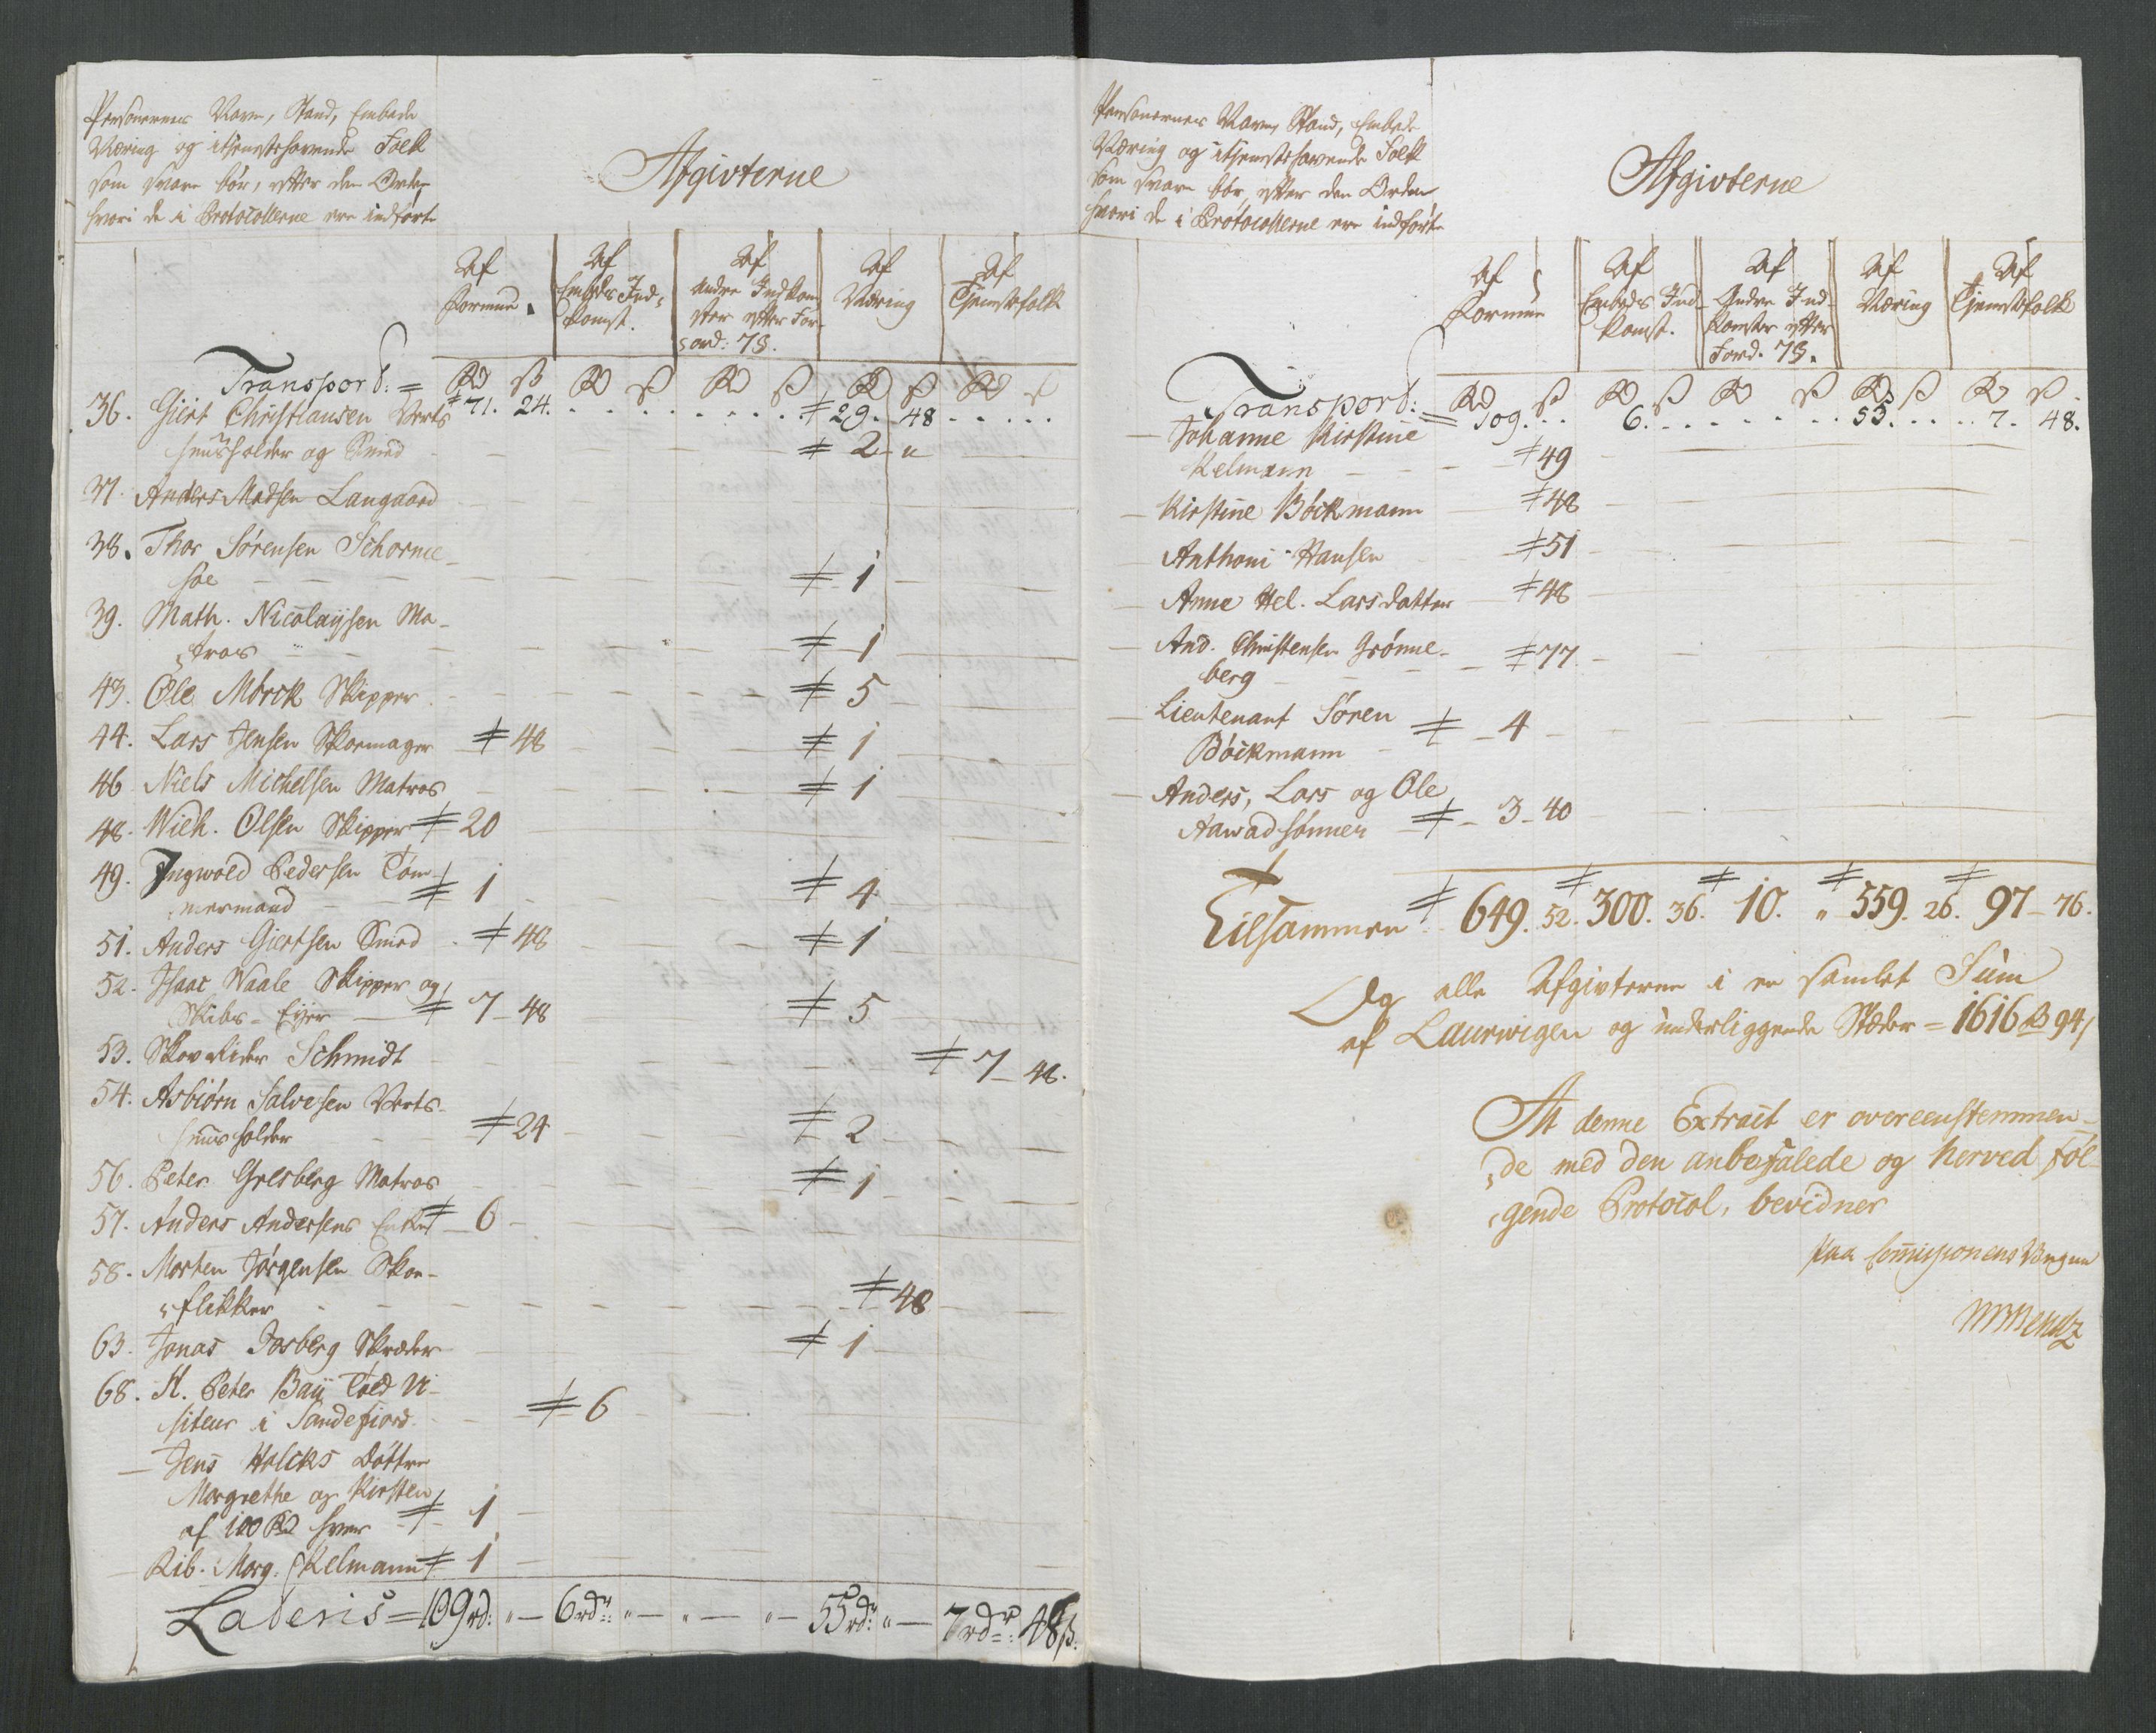 Personernes Navn, Stand, Embede
Næring og itjenestehavende Folk
som svare bør, efter den Orden
hvori de i Protocollerne ere indførte
Afgivterne
Af Formue.
Af Embeds Ind-komst.
Af Andre Indkom-ster efter For-ord: 7§.
Af Næring
Af Tjenestefolk
Transport: = Rd ß Rd ß Rd ß Rd ß Rd ß
71. 24. 29. 48
36. Giert Christiansen Verts
huusholder og Smed 2 "
37. Anders Madsen Langaard
38. Thor Sørensen Schorne-
foe 1
39. Math. Nicolaysen Ma-
tros 1
43. Ole Mörck Skipper 5
44. Lars Jensen Skoemager 48 1
46 Niels Michelsen Matros 1
48. Wilh. Olsen Skipper 20
49. Ingwold Pedersen Töm-
mermand 1 4
51. Anders Giertsen Smed 48 1
52. Isaac Waale Skipper og
Skibs-Eyer 7-48 5
53. Skovrider Schmidt 7-48.
54. Asbiørn Salvesen Verts-
huusholder 24 2
56. Peter Gresberg Matros 1
57. Anders Andersens Enke 6
58. Morten Jørgensen Skoe-
flikker 48
63. Jonas Fosberg Skræder 1
68. H. Peter Baÿ Told Vi-
siteur i Sandefiord 6
— Jens Holcks Döttre
Margrethe og Kirsten
af 100 Rd hver 1
Rib. Marg. Kelmann 1
Lateris = 109rd: " — 6rdr: " — " — " — 55rd: " — 7rdr: 48ß.
Personernes Navn, Stand, Embede
Næring og itjenestehavende Folk
som svare bør, efter den Orden
hvori de i Protocollerne ere indførte
Afgivterne
Af Formue
Af Embeds Ind-komst.
Af Andre Ind-komster efter Ford. 7§.
Af Næring
Af Tjenestefolk
Transport: = Rd ß Rd ß Rd ß Rd ß Rd ß
109. 6. 55. 7. 48.
— Johanne Kirstine
Kelmann 49
— Kirstine Böckmann 48
Anthoni Hansen 51
— Anne Hel. Larsdatter 48
— And. Christensen Grönne-
berg 77
— Lieutenant Sören
Böckmann 4
— Anders, Lars og Ole
Aawadsönner 3-40
Tilsammen 649. 52. 300. 36. 10. " 559. 26. 97-76.
Og alle Afgivterne i en samlet Sum
af Laurwigen og underliggende Stæder = 1616 Rd 94ß
At denne Extract er overeenstemmen-
de med den anbefalede og herved føl-
gende Protocol, bevidner
paa Commissionens Vegne
Bentz